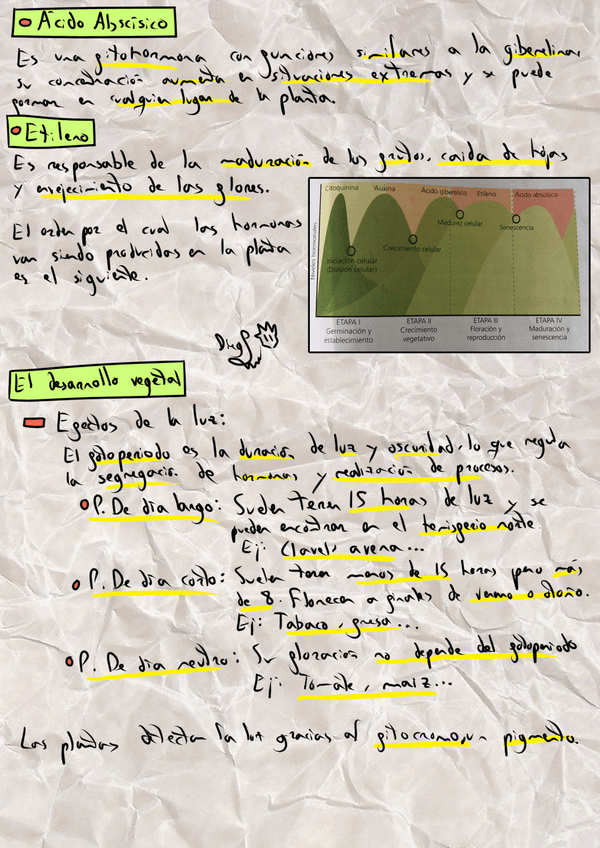 Ácido Abscísico
Es una fitohormona con funciones similares a la giberelina,
su concentración aumenta en situaciones extremas y se puede
formar en cualquier lugar de la planta.
Etileno
Es responsable de la maduración de los frutos, caida de hojas
y envejecimiento de las flores.
El orden por el cual las hormonas
van siendo producidas en la planta
es el siguiente.
Niveles hormonales
Citoquinina Auxina Ácido giberélico Etileno Ácido abscísico
Madurez celular
Senescencia
Crecimiento celular
Iniciación celular
(División celular)
ETAPA I ETAPA II ETAPA III ETAPA IV
Germinación y Crecimiento Floración y Maduración y
establecimiento vegetativo reproducción senescencia
El desarrollo vegetal
Efectos de la luz:
El fotoperiodo es la duración de luz y oscuridad, lo que regula
la segregación de hormonas y realización de procesos.
P. De dia largo: Suelen tener 15 horas de luz y se
pueden encontrar en el hemisferio norte.
Ej: Clavel, avena...
P. De dia corto: Suelen tener menos de 15 horas pero más
de 8. Florecen a finales de verano o otoño.
Ej: Tabaco, fresa...
P. De dia neutro: Su floración no depende del fotoperiodo
Ej: Tomate, maiz...
Las plantas detectan la luz gracias al fitocromo, un pigmento.